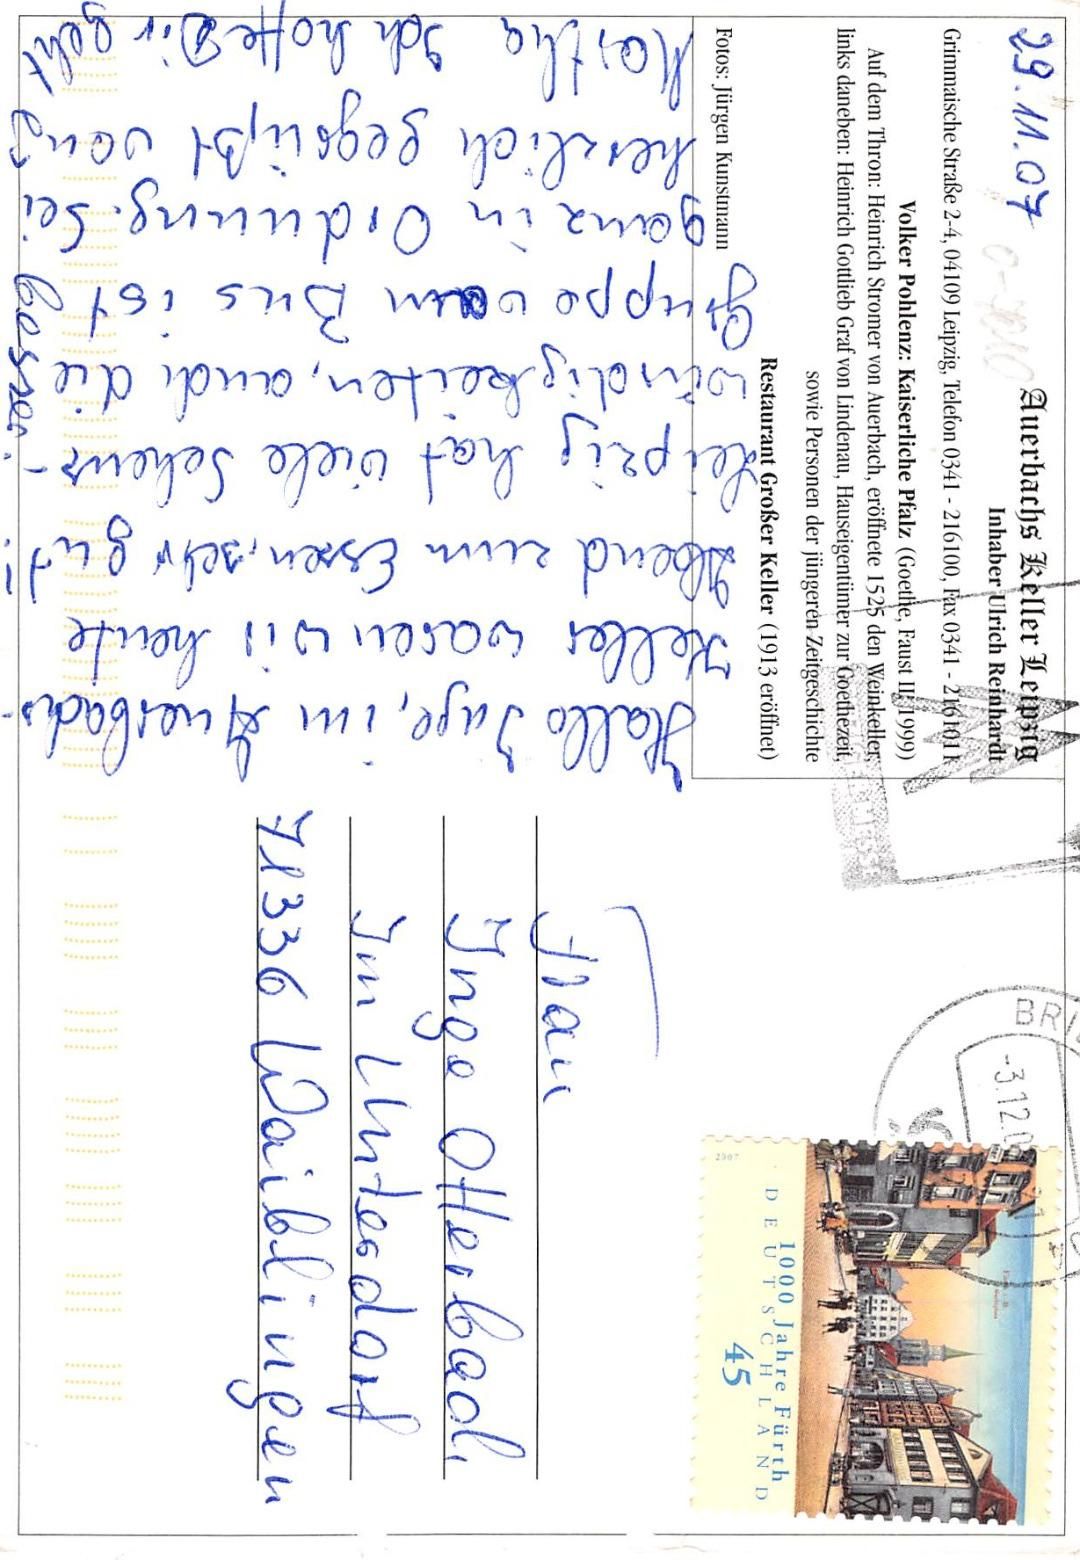 29.11.07
Auerbachs Keller Leipzig
Inhaber Ulrich Reinhardt
Grimmaische Straße 2-4, 04109 Leipzig, Telefon 0341 - 216100, Fax 0341 - 2161011
Volker Pohlenz: Kaiserliche Pfalz (Goethe, Faust II; 1999)
Auf dem Thron: Heinrich Stromer von Auerbach, eröffnete 1525 den Weinkeller,
links daneben: Heinrich Gottlieb Graf von Lindenau, Hauseigentümer zur Goethezeit,
sowie Personen der jüngeren Zeitgeschichte
Restaurant Großer Keller (1913 eröffnet)
Fotos: Jürgen Kunstmann
Hallo Inge, im Auerbachs-
Keller waren wir heute
Abend zum Essen, sehr gut!
Leipzig hat viele Sehens-
würdigkeiten, auch die
Gruppe vom Bus ist
ganz in Ordnung. Sei
herzlich gegrüßt von
Martha Ich hoffe Dir geht
es
Frau
Inge Otterbach
Im Unterdorf
71336 Waiblingen
BRI
-3.12.0
1000 Jahre Fürth
DEUTSCHLAND
45
2007